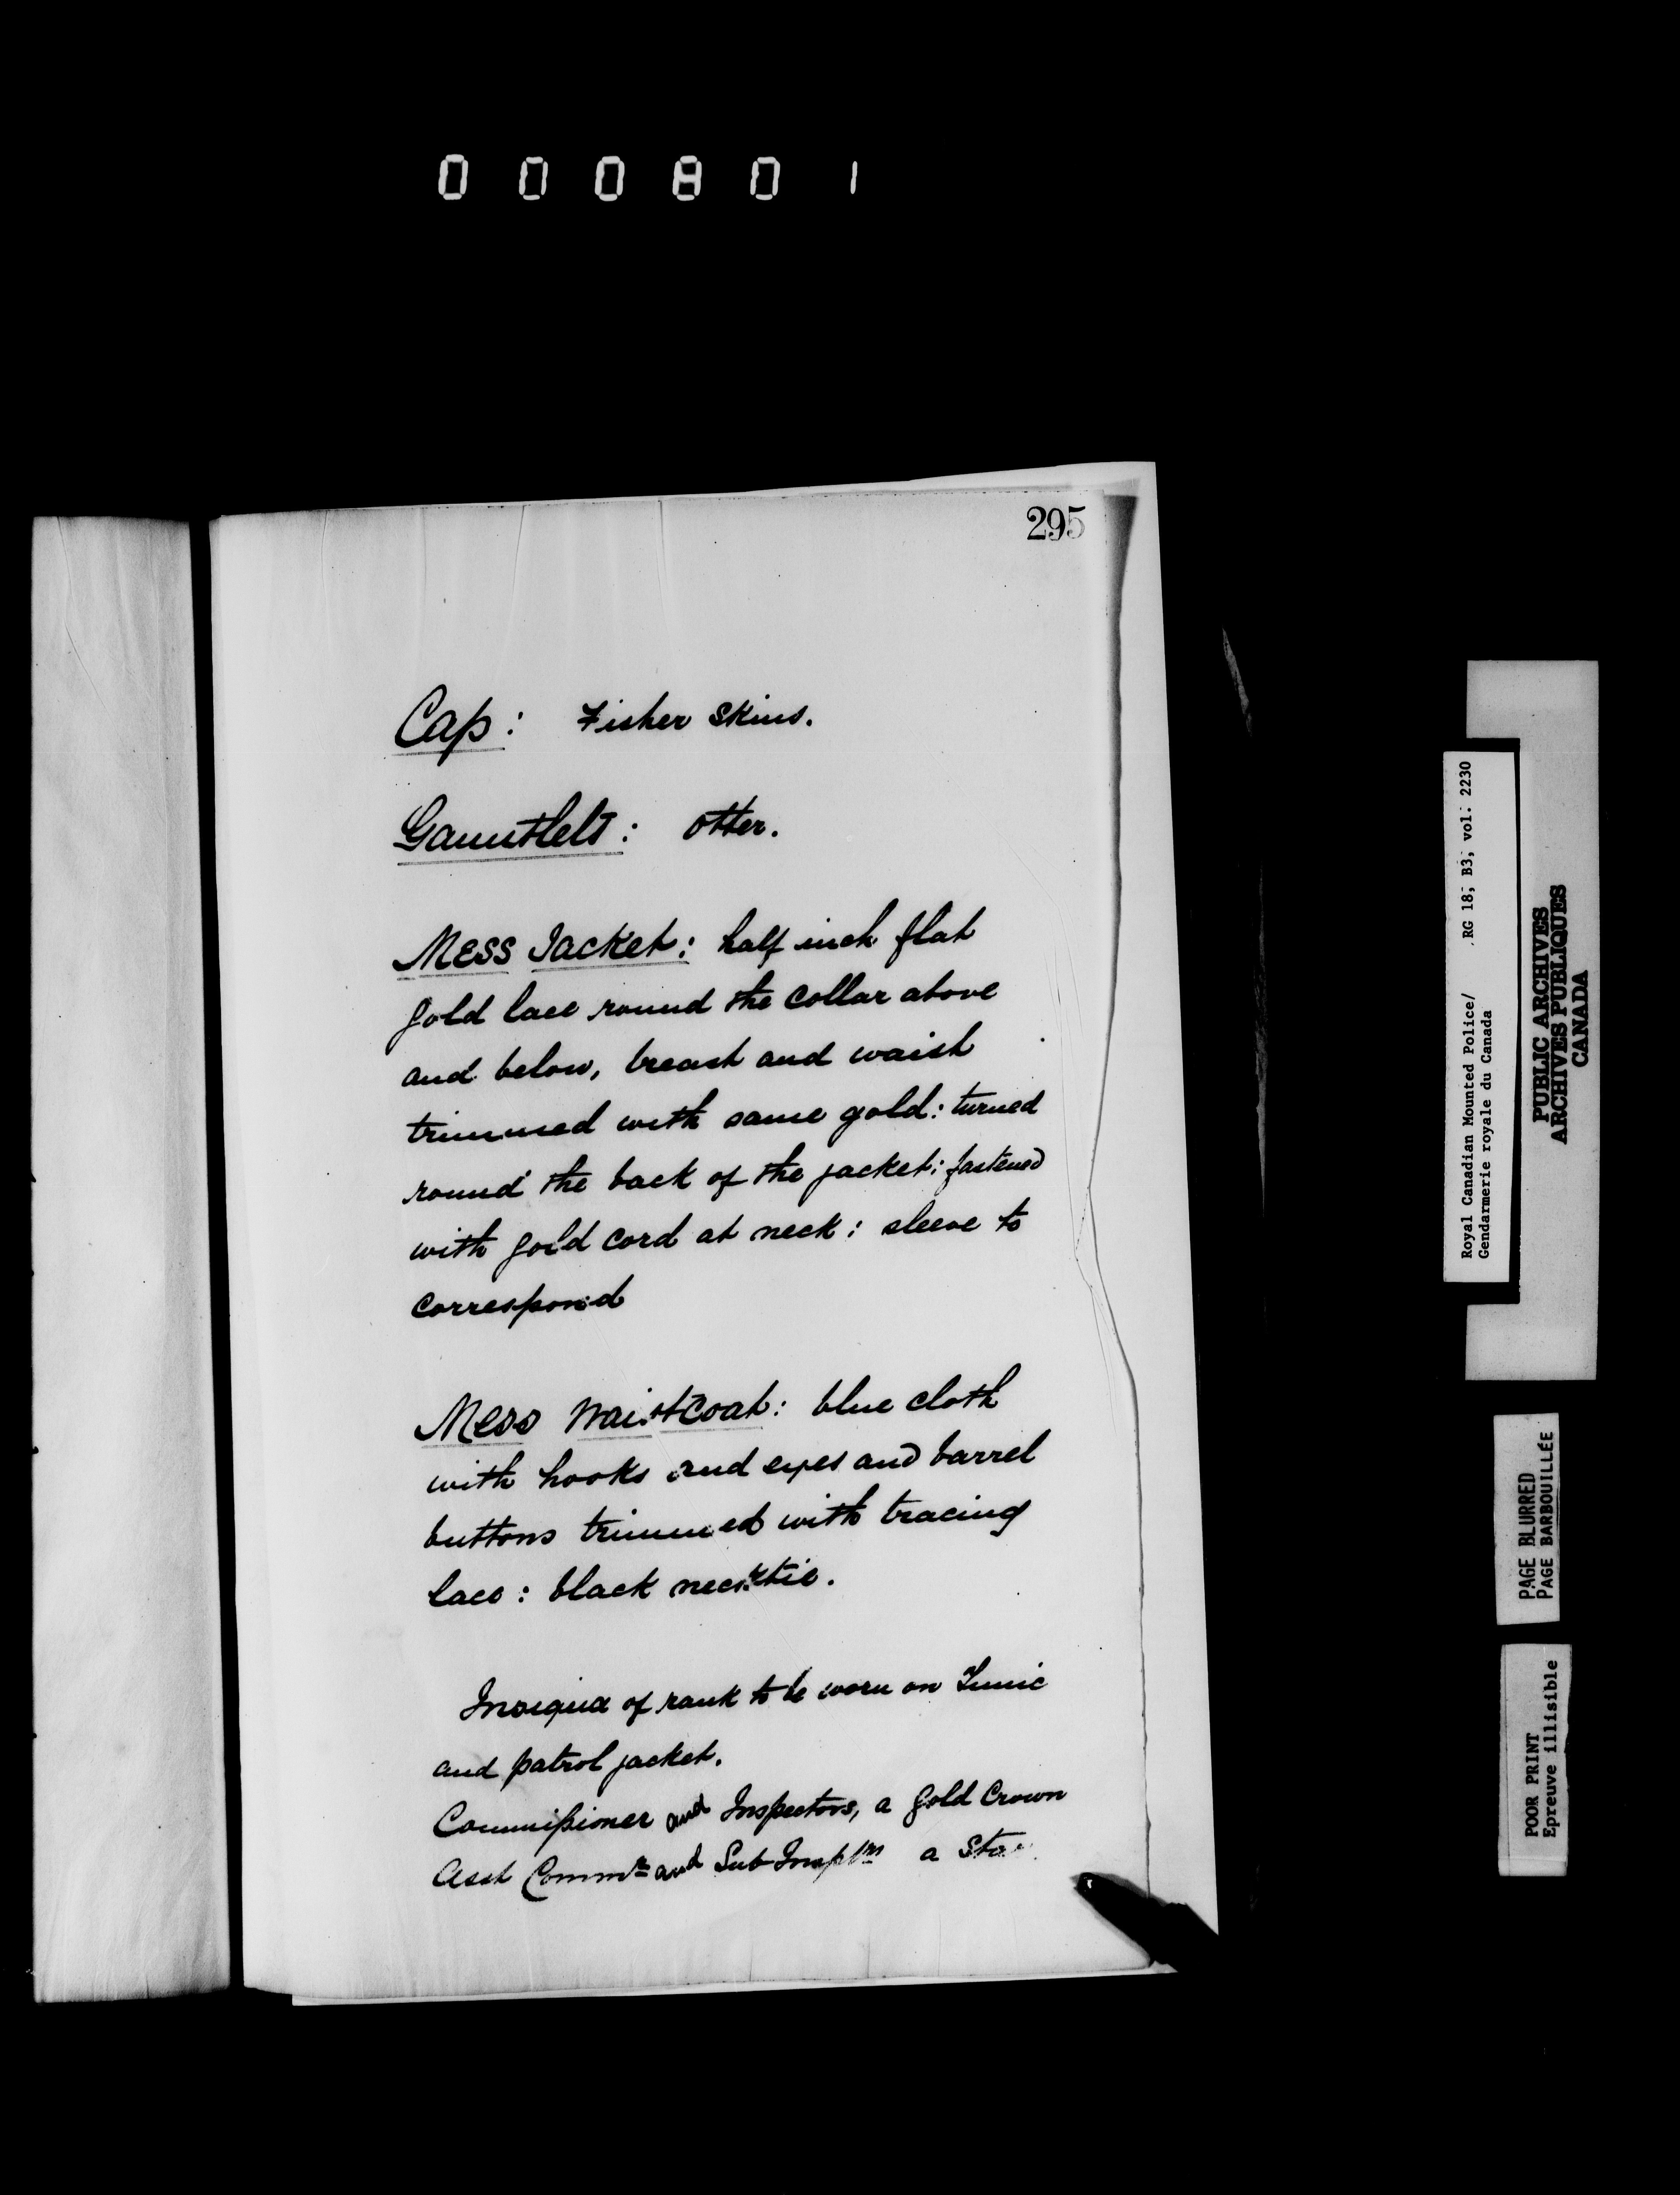 000801
295
Cap: Fisher Skins.
Gauntlets: Otter.
Mess Jacket: half inch flat
gold lace round the Collar above
and below, breast and waist
trimmed with same gold: turned
round the back of the jacket: fastened
with gold cord at neck: sleeve to
correspond
Mess Waistcoat: blue cloth
with hooks and eyes and barrel
buttons trimmed with tracing
lace: black necktie.
Insignia of rank to be worn on Tunic
and patrol jacket.
Commissioner and Inspectors, a gold Crown
Asst Commr and Sub-Insptrs a Star
Royal Canadian Mounted Police/ RG 18, B3, vol. 2230
Gendarmerie royale du Canada
PUBLIC ARCHIVES
ARCHIVES PUBLIQUES
CANADA
PAGE BLURRED
PAGE BARBOUILLÉE
POOR PRINT
Epreuve illisible